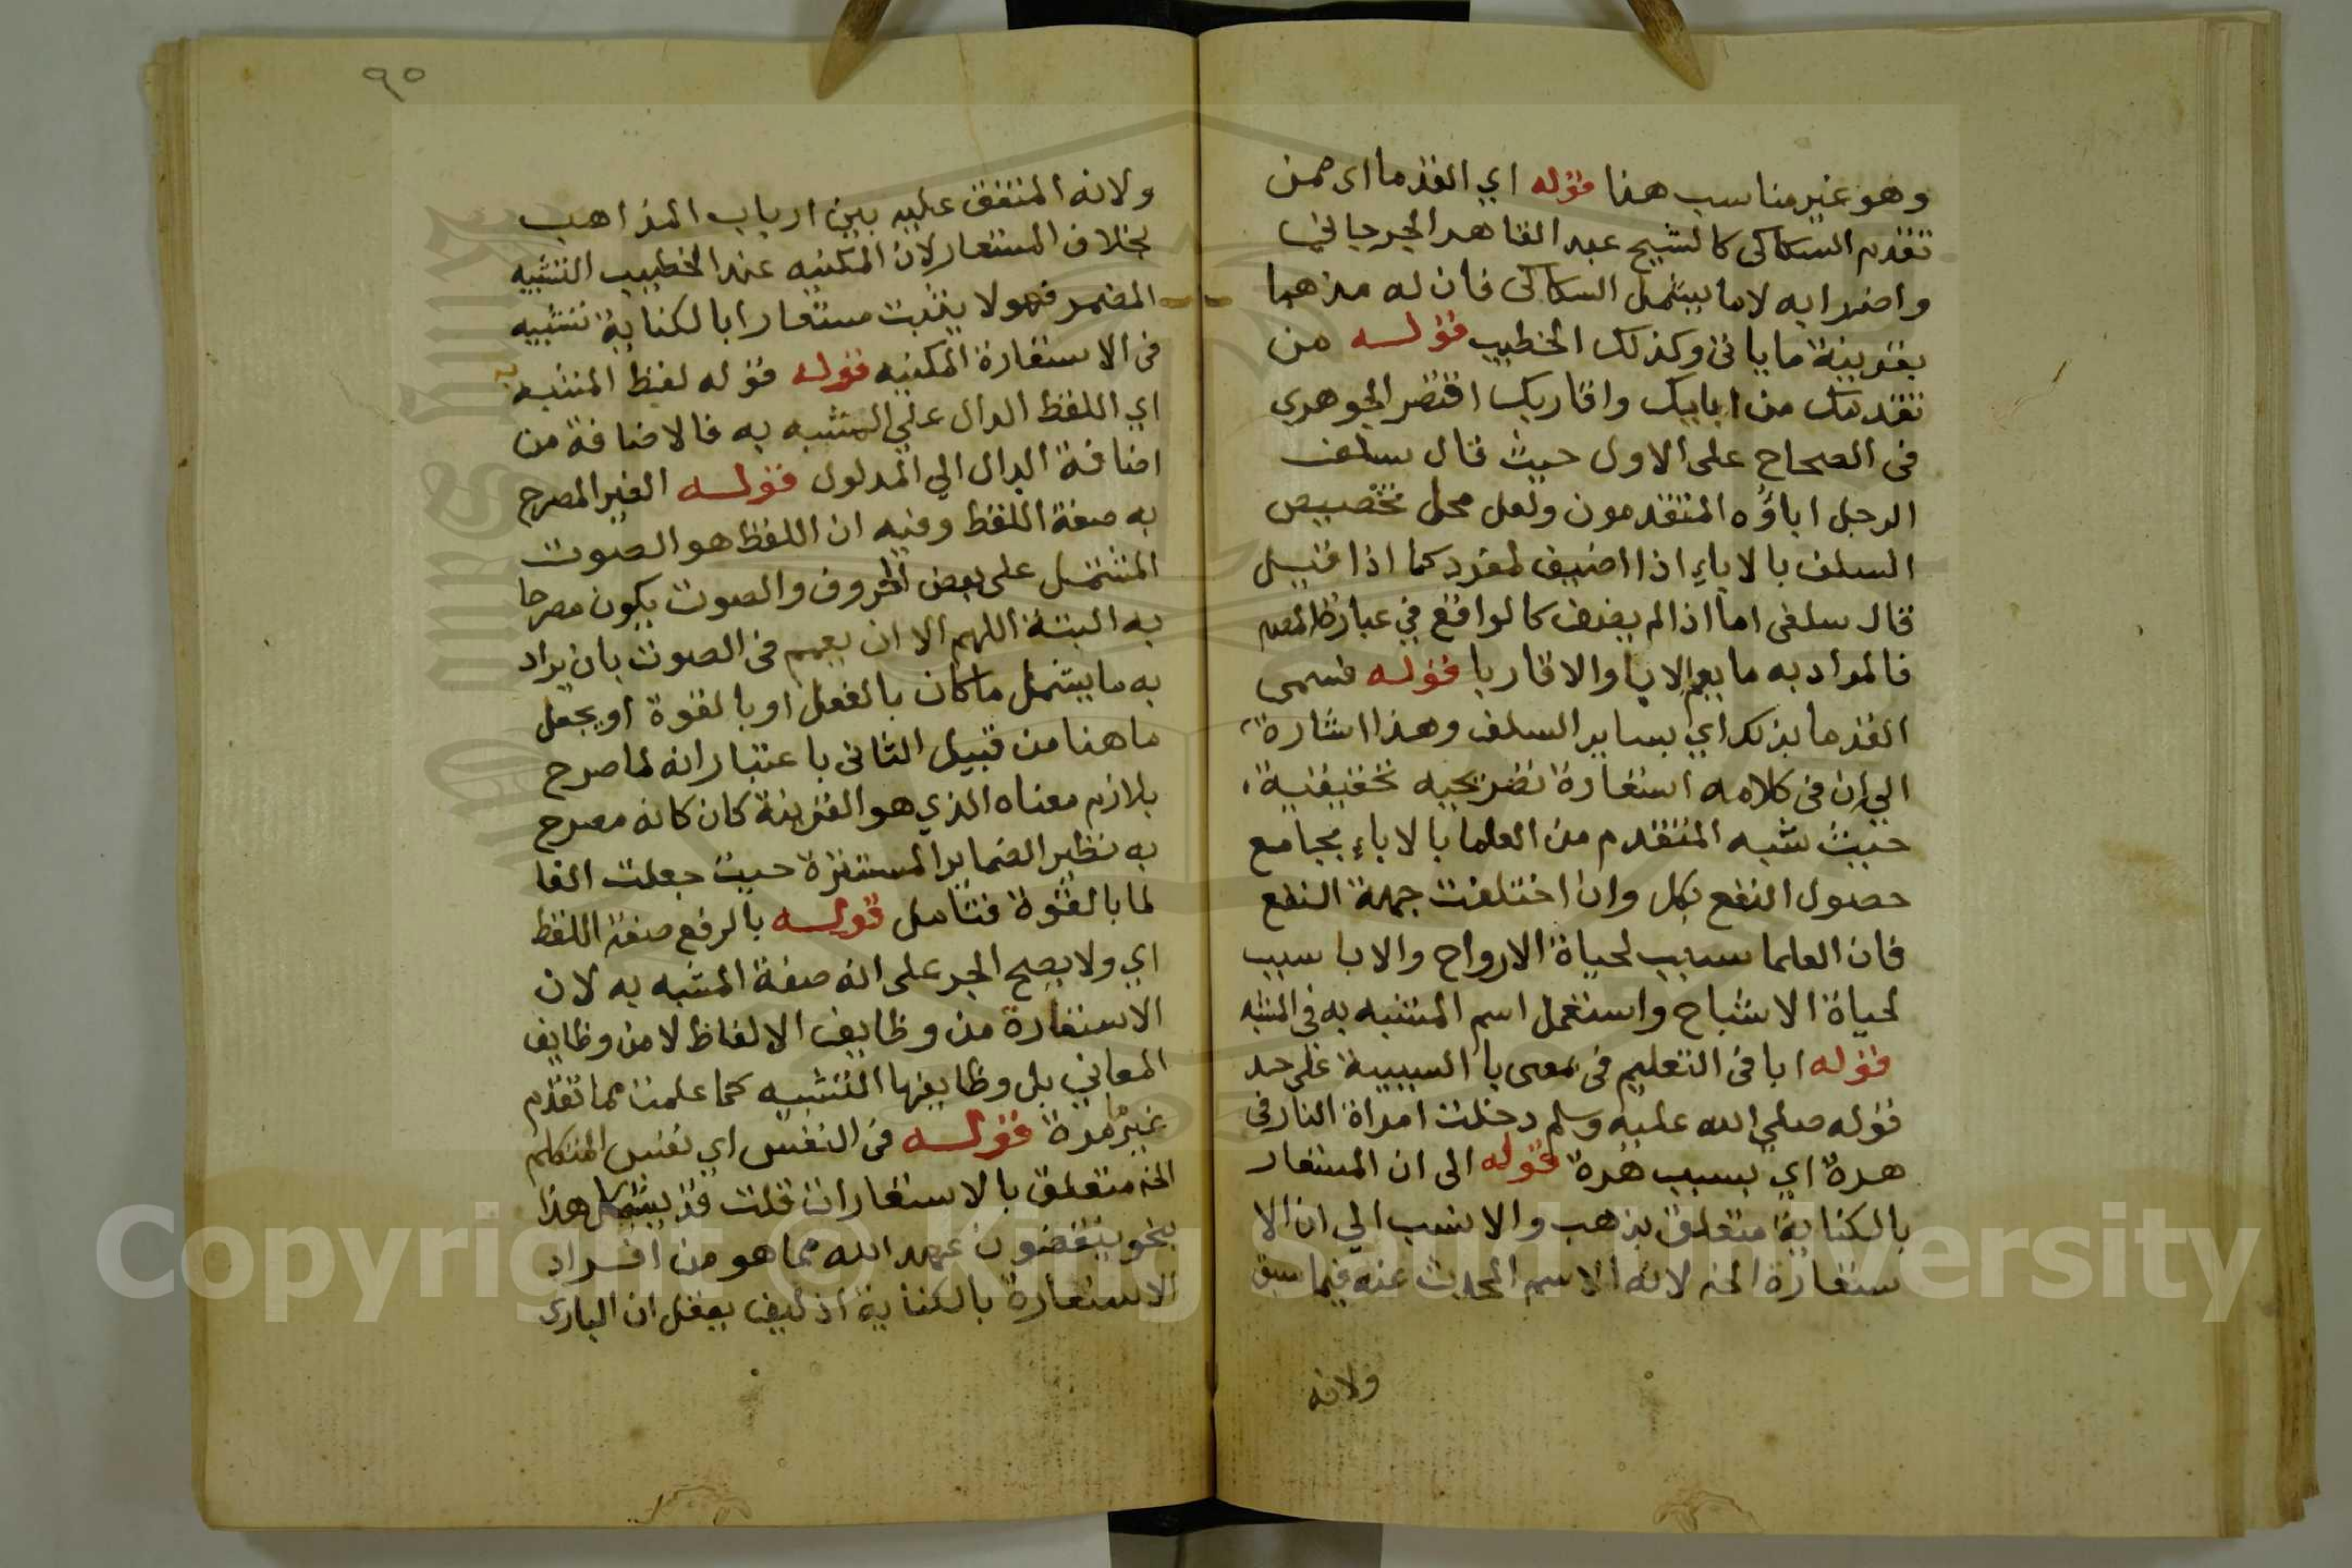 وهو غير مناسب هنا قوله اي القدما اى ممن
تقدم السكاكى كالشيخ عبد القاهر الجرجاني
واضرابه لا ما يشمل السكاكى فان له مذهبا
بقرينة ما ياتى وكذلك الخطيب قوله من
تقدمك من ابايك واقاربك اقتصر الجوهري
فى الصحاح على الاول حيث قال سلف
الرجل اباؤه المتقدمون ولعل محل تخصيص
السلف بالاباء اذا اضيف لمفرد كما اذا قيل
قال سلفى اما اذا لم يضف كالواقع في عبارة المصم
فالمراد به ما يعم الابا والاقاربا قوله فسمى
القدما بذلك اي بساير السلف وهذا اشارة
الي ان فى كلامه استعارة تصريحيه تحقيقية
حيث شبه المتقدم من العلما بالاباء بجامع
حصول النفع بكل وان اختلفت جهة النفع
فان العلما سبب لحياة الارواح والابا سبب
لحياة الاشباح واستعمل اسم المشبه به في المشبه
قوله ابا فى التعليم فى بمعنى با السببية على حد
قوله صلي الله عليه وسلم دخلت امراة النار في
هرة اي بسبب هرة قوله الى ان المستعار
بالكناية متعلق بذهب والانسب الي ان الا
ستعارة الخ لانه الاسم المحدث عنه فيما سبق
ولانه
٩٥
ولانه المتفق عليه بين ارباب المذاهب
بخلاف المستعار لان المكنيه عند الخطيب التشبيه
المضمر فهو لا يثبت مستعارا بالكناية تشبيه
فى الاستعارة المكنيه قوله قوله لفظ المشبه به
اي اللفظ الدال علي المشبه به فالاضافة من
اضافة الدال الي المدلول قوله الغير المصرح
به صفة اللفظ وفيه ان اللفظ هو الصوت
المشتمل على بعض الحروف والصوت يكون مصرحا
به البتة اللهم الا ان يعمم فى الصوت بان يراد
به ما يشمل ما كان بالفعل او بالقوة او يجعل
ما هنا من قبيل الثانى باعتبار انه لما صرح
بلازم معناه الذي هو القرينة كان كانه مصرح
به نظير الضماير المستترة حيث جعلت الفا
لما بالقوة فتامل قوله بالرفع صفة اللفظ
اي ولا يصح الجر على انه صفة المشبه به لان
الاستعارة من وظايف الالفاظ لا من وظايف
المعاني بل وظايفها التشبيه كما علمت مما تقدم
غير ما مرة قوله فى النفس اي نفس المتكلم
الخ متعلق بالاستعارات قلت قد يشكل هذا
بنحو ينقضون عهد الله مما هو من افراد
الاستعارة بالكناية اذ كيف يعقل ان البارى
Copyright © King Saud University